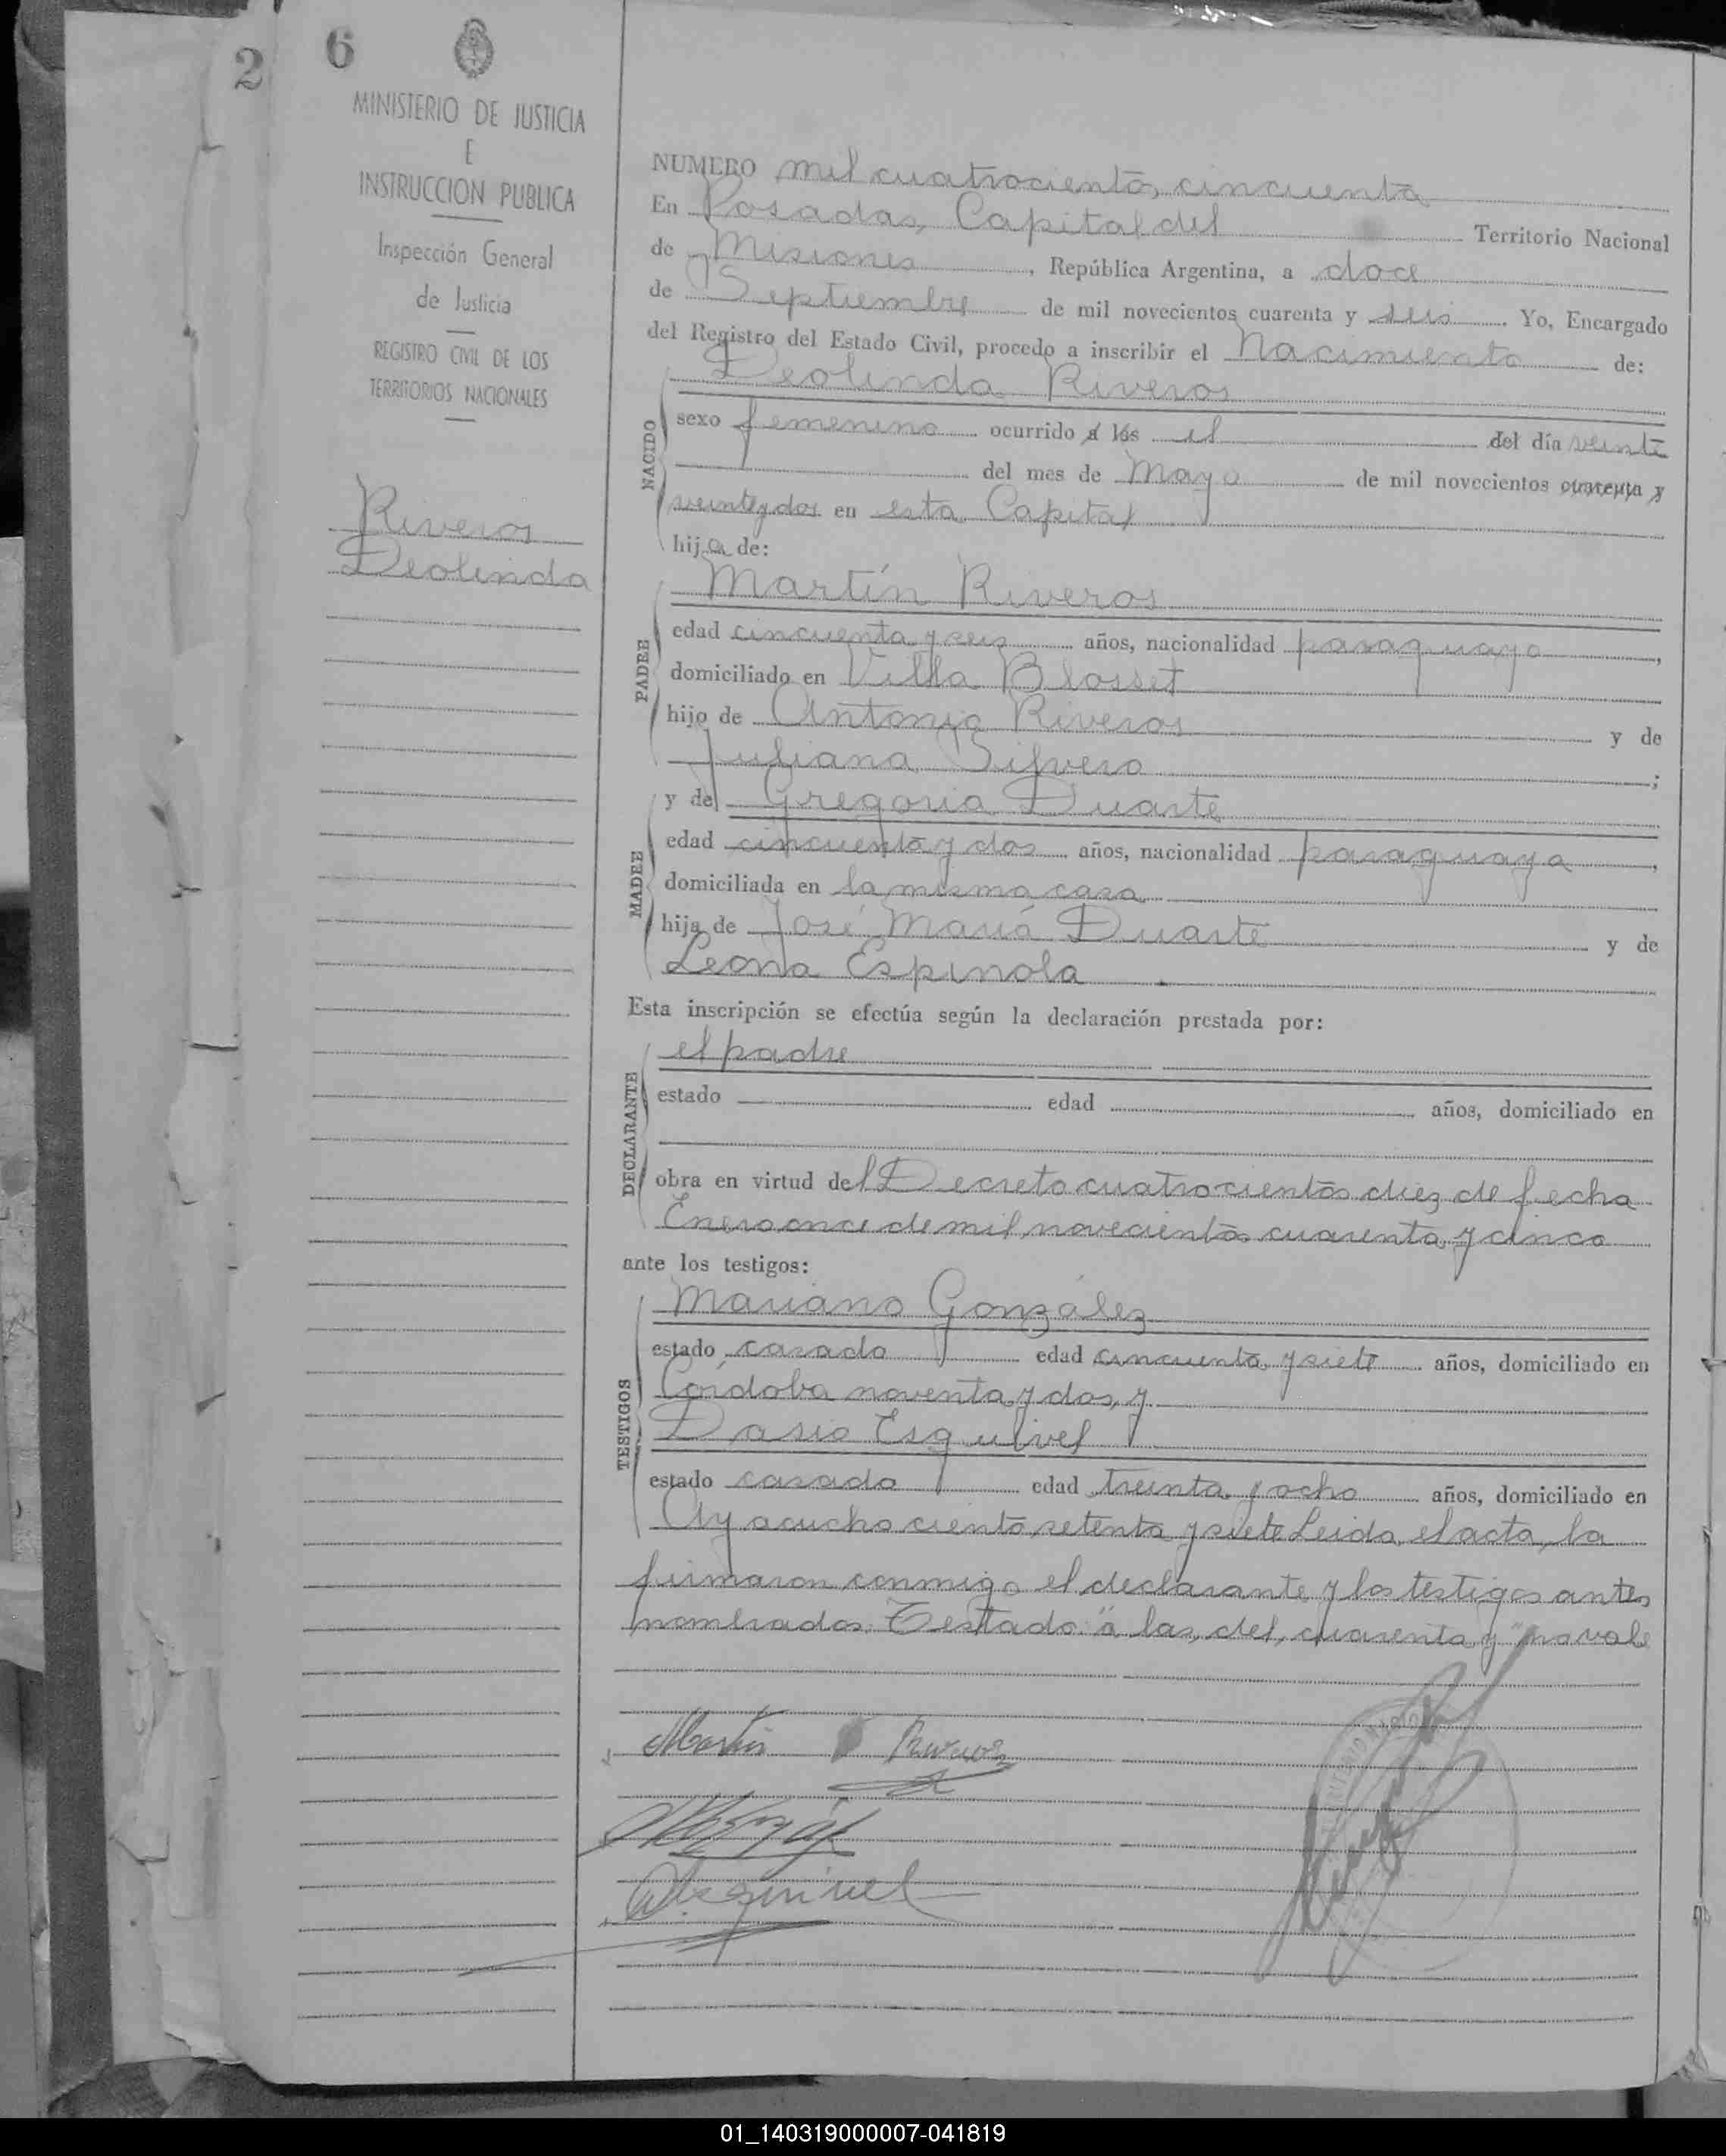 2 6
MINISTERIO DE JUSTICIA
E
INSTRUCCION PUBLICA
Inspección General
de Justicia
REGISTRO CIVIL DE LOS
TERRITORIOS NACIONALES
Riveros
Deolinda
NUMERO mil cuatrocientos cincuenta
En Posadas, Capital del Territorio Nacional
de Misiones, República Argentina, a doce
de Septiembre de mil novecientos cuarenta y seis Yo, Encargado
del Registro del Estado Civil, procedo a inscribir el Nacimiento de:
Deolinda Riveros
NACIDO
sexo femenino ocurrido a las el del día veinte
del mes de Mayo de mil novecientos cuarenta y
veinte y dos en esta Capital
hija de:
PADRE
Martín Riveros
edad cincuenta y seis años, nacionalidad paraguayo,
domiciliado en Villa Blosset
hijo de Antonio Riveros y de
Juliana Silvero;
MADRE
y de Gregoria Duarte
edad cincuenta y dos años, nacionalidad paraguaya,
domiciliada en la misma casa
hija de José María Duarte y de
Leona Espinola.
Esta inscripción se efectúa según la declaración prestada por:
DECLARANTE
el padre
estado edad años, domiciliado en
obra en virtud del Decreto cuatrocientos diez de fecha
Enero once de mil novecientos cuarenta y cinco
ante los testigos:
TESTIGOS
Mariano González
estado casado edad cincuenta y siete años, domiciliado en
Córdoba noventa y dos, y
Dario Esquivel
estado casado edad treinta y ocho años, domiciliado en
Ayacucho ciento setenta y siete Leida el acta, la
firmaron conmigo el declarante y los testigos antes
nombrados. Testado: "a las, del, cuarenta y" no vale
Martin Riveros
D. Esquivel
01_140319000007-041819